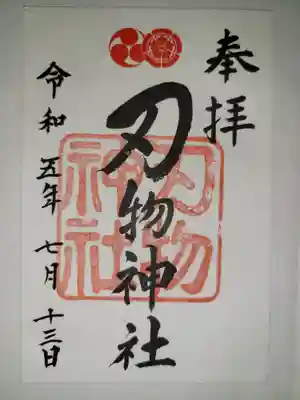 奉拝
刃物神社
令和五年七月十三日
刃物
神社